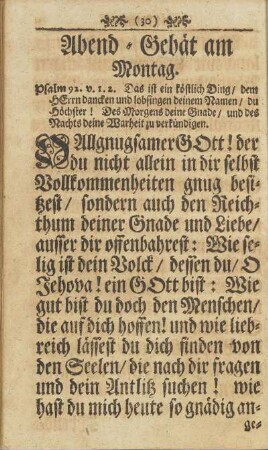 (30)
Abend-Gebät am
Montag.
Psalm 92. v. 1. 2. Das ist ein köstlich Ding/ dem
HErrn dancken und lobsingen deinem Namen/ du
Höchster! Des Morgens deine Gnade/ und des
Nachts deine Warheit zu verkündigen.
O Allgnugsamer GOtt! der
du nicht allein in dir selbst
Vollkommenheiten gnug besi-
tzest/ sondern auch den Reich-
thum deiner Gnade und Liebe/
ausser dir offenbahrest: Wie se-
lig ist dein Volck/ dessen du/ O
Jehova! ein GOtt bist: Wie
gut bist du doch den Menschen/
die auf dich hoffen! und wie lieb-
reich lässest du dich finden von
den Seelen/ die nach dir fragen
und dein Antlitz suchen! wie
hast du mich heute so gnädig an-
ge-